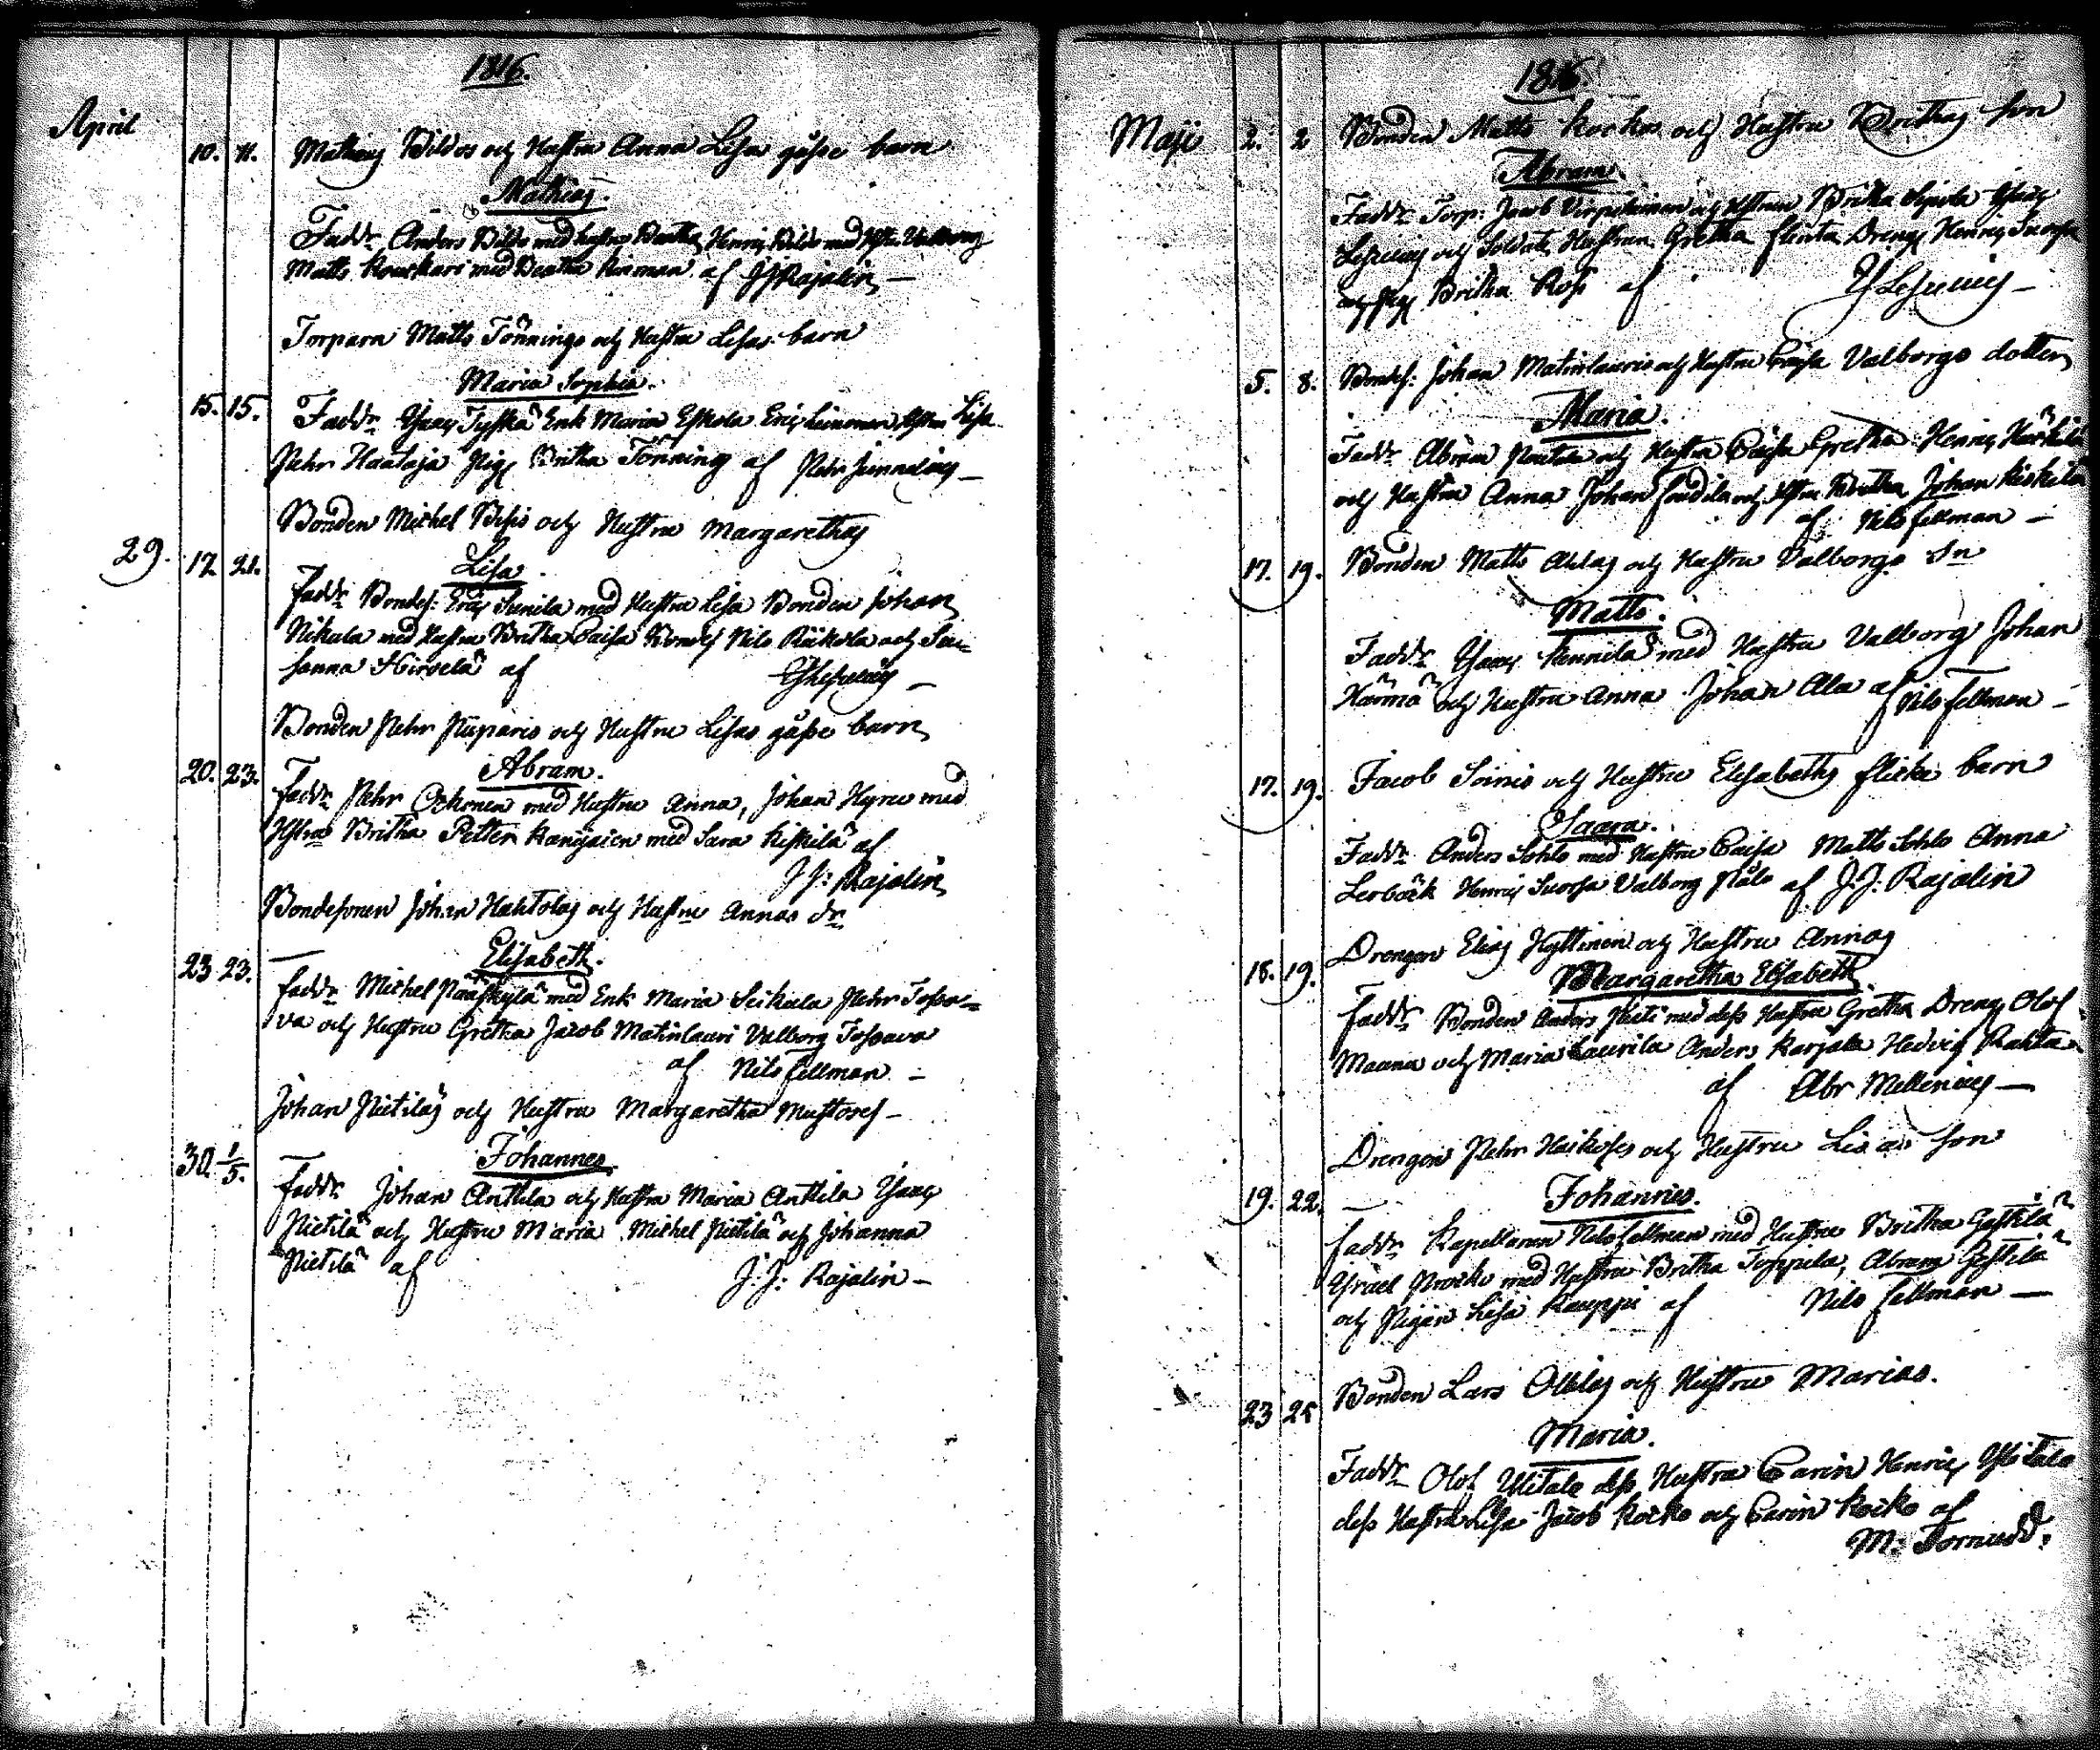 1816.
April
10. 11. Mathias Bildos och Hustru Anna Lisa gåsse barn
Mathias.
Fadd:r Anders Bildo med hustru Beatha Henric Bildo med Hstru Valborg
Matts Kourkari med Beatha Kinman af J J Rajalin –
Torparn Matts Tönnings och Hustru Lisas barn
Maria Sophia.
15. 15. Fadd:r Isaac Tyskä Enk Maria Eskola Eric Leinonen Hstru Lisa
Pehr Haataja Pig Britha Tönning af Pehr Junnelius –
Bonden Michel Besis och Hustru Margarethas
29. 17. 21. Lisa
Fadd:r Bondes: Eric Sunila med Hustru Lisa Bonden Johan
Nikula med Hustru Britha Caisa Bondes Nils Räikola och Su-
sanna Hirvelä af
Bonden Pehr Piiparis och Hustru Lisas gåsse barn
Abram.
20. 23. Fadd:r Pehr Oikonen med Hustru Anna, Johan Hyru med
Hstru Britha Petter med Sara Kiskilä af
J J: Rajalin
Bondesonen Johan Hahtolas och Hustru Annas dr
Elisabeth.
23 23. Fadd:r Michel Pääskylä med Enk Maria Seikula Pehr Tossa-
va och Hustru Gretha Jacob Matinlauri Valborg Tossava
af Nils Fellman –
Johan Pietiläs och Hustru Margaretha Mustos –
Johannes
30. 1/5. Fadd:r Johan Anttila och Hustru Maria Anttila Isaac
Pietilä och Hustru Maria Michel Pietilä och Johanna
Pietilä af J: J: Rajalin –
1816.
Maji 2. 2 Bonden Matts Kockos och Hustru Brithas son
Abram
Fadd:r Torp: Jacob Virpiäinen och Hstrun Britha Isaac
och Soldats Hustrun Gretha Flinta Dreng Henric Suorsa
och Pig Britha Ross af
5. 8. Bondes: Johan Matinlauris och Hustru Caisa Valborgs dotter
Maria.
Fadd:r Abram och Hustru Caisa Gretha Henric Härkilä
och Hustru Anna Johan och Hstru Britha Johan Kiskilä
af Nils Fellman –
17. 19. Bonden Matts Alas och Hustru Valborgs Sn
Matts.
Fadd:r Isaac Kunnila med Hustru Valborg Johan
Härmä och Hustru Anna Johan Ala af Nils Fellman –
17. 19. Jacob Soinis och Hustru Elisabeths flicke barn
Saara.
Fadd:r Anders Sohlo med Hustru Caisa Matts Sohlo Anna
Lerbäck Henric Suorsa Valborg Ståle af J. J: Rajalin
Drengen Elias Hyttinen och Hustru Annas
18. 19. Margaretha Elisabeth
Fadd:r Bonden Anders med dess Hustru Gretha Dreng Olof
Maana och Maria Laurila Anders Karjala Hedvig Rahta
af Abr Mellenius –
Drengen Pehr Heikoses och Hustru Lisas son
19. 22. Johannes.
Fadd:r Kapellanen Nils Fellman med Hustru Britha Gestilä
Israel Procko med Hustru Britha Toppila, Abram Gestilä
och Pigan Lisa Kauppi af Nils Fellman –
Bonden Lars Ollilas och Hustru Marias.
23 25 Maria.
Fadd:r Olof Ylitalo dess Hustru Carin Henric Ylitalo
dess Hustru Lisa Jacob Kocko och Carin Kocko af
M: Tornudd.